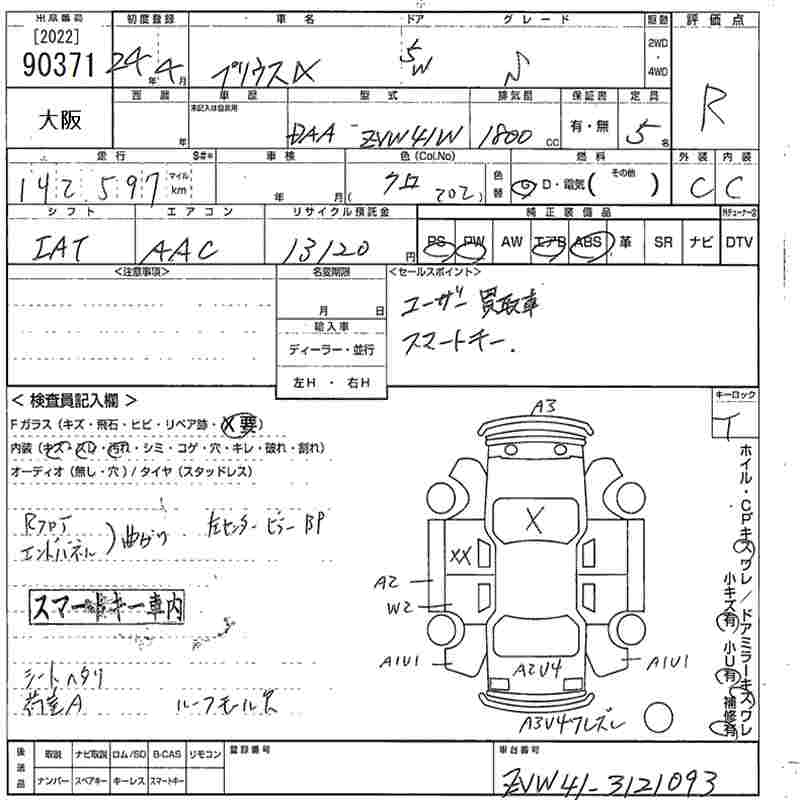 出品番号 初度登録 車名 ドア グレード 駆動 評価点
[2022]
90371 24年 4月 プリウスα 5W 2WD・4WD R
大阪 西暦 車歴 型式 排気量 保証書 定員
未記入は自家用
年 DAA ZVW41W 1800cc 有・無 5名
走行 S#* 車検 色(Col.No) 燃料 外装 内装
142,597 マイル km 年 月 クロ (202) 色替 G D・電気 (その他) C C
シフト エアコン リサイクル預託金 純正装備品
IAT AAC 13120円 PS PW AW エアB ABS 革 SR ナビ DTV
<注意事項> 名変期限 <セールスポイント>
月 日 ユーザー買取車
輸入車 スマートキー.
ディーラー・並行
左H・右H
<検査員記入欄> キーロック
Fガラス(キズ・飛石・ヒビ・リペア跡・X要)
内装(キズ・スレ・汚れ・シミ・コゲ・穴・キレ・破れ・割れ)
オーディオ(無し・穴)/タイヤ(スタッドレス)
Rフロア
エンドパネル ) 曲がり 左センターピラーBP
スマートキー車内
シートヘタリ
荷室A ルーフモール欠
A3
X
XX
A2
W2
A1U1 A2U4 A1U1
A3V4ワレズレ
ホイル・CPキズワレ/ドアミラーキズワレ
小キズ(有) 小U(有) 補修(有)
後送品 取説 ナビ取説 ロム/SD B-CAS リモコン 登録番号 車台番号
ナンバー スペアキー キーレス スマートキー ZVW41-3121093